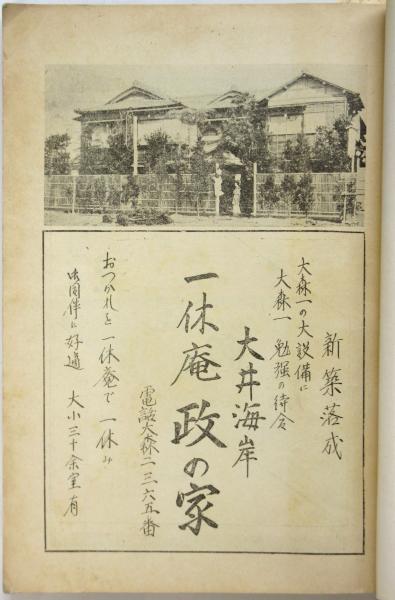 新築落成
大森一の大設備に
大森一 勉強の待合
大井海岸
一休庵 政の家
電話大森二三六五番
おつかれを一休庵で一休み
御同伴に好適 大小三十余室有